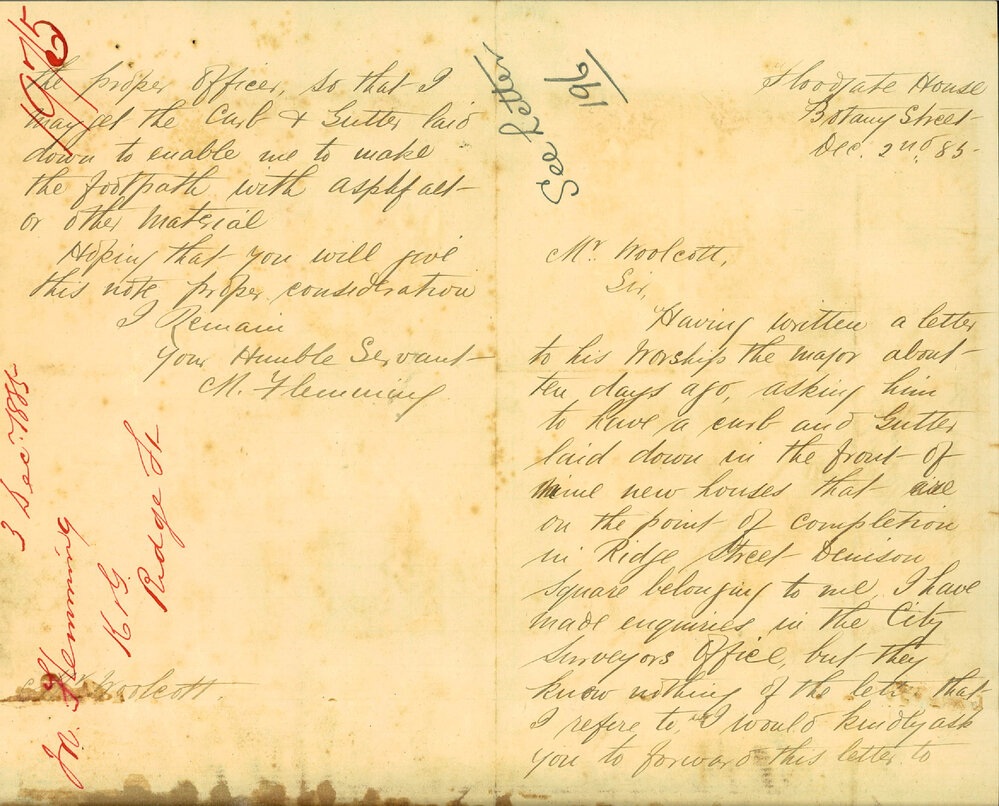 Floodgate House
Botany Street
Dec. 2nd. 85-
Mr. Woolcott,
Sir,
Having written a letter
to his Worship the Major about
ten days ago, asking him
to have a curb and Gutter
laid down in the front of
nine new houses that are
on the point of completion
in Ridge Street Denison
Square belonging to me, I have
made enquiries in the City
Surveyors Office, but they
know nothing of the letr that
I refere to, I would kindly ask
you to forward this letter to
the proper Officer, so that I
may get the Curb & Gutter laid
down to enable me to make
the footpath with asphfalt
or other material
Hoping that you will give
this note proper consideration
I Remain
Your Humble Servant
M. Flemming
Woolcott.
See Letter
196
1975
3 Dec. 1885
M. Flemming
K & G
Ridge St